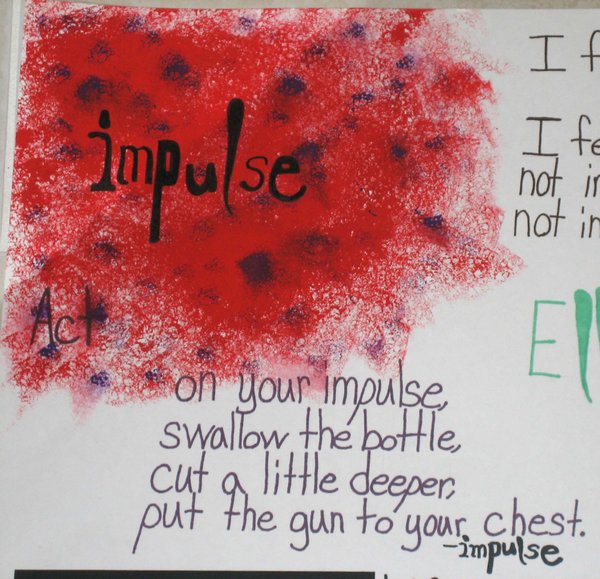 impulse
Act
on your impulse,
swallow the bottle,
cut a little deeper,
put the gun to your chest.
-impulse
I f
I fe
not in
not in
Ell